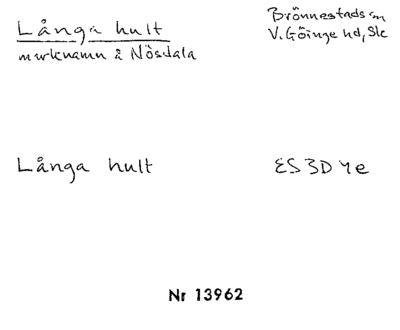 Långa hult
marknamn å Nösdala
Brönnestads sn
V. Göinge hd, Sk
Långa hult
ES 3D 4e
Nr 13962